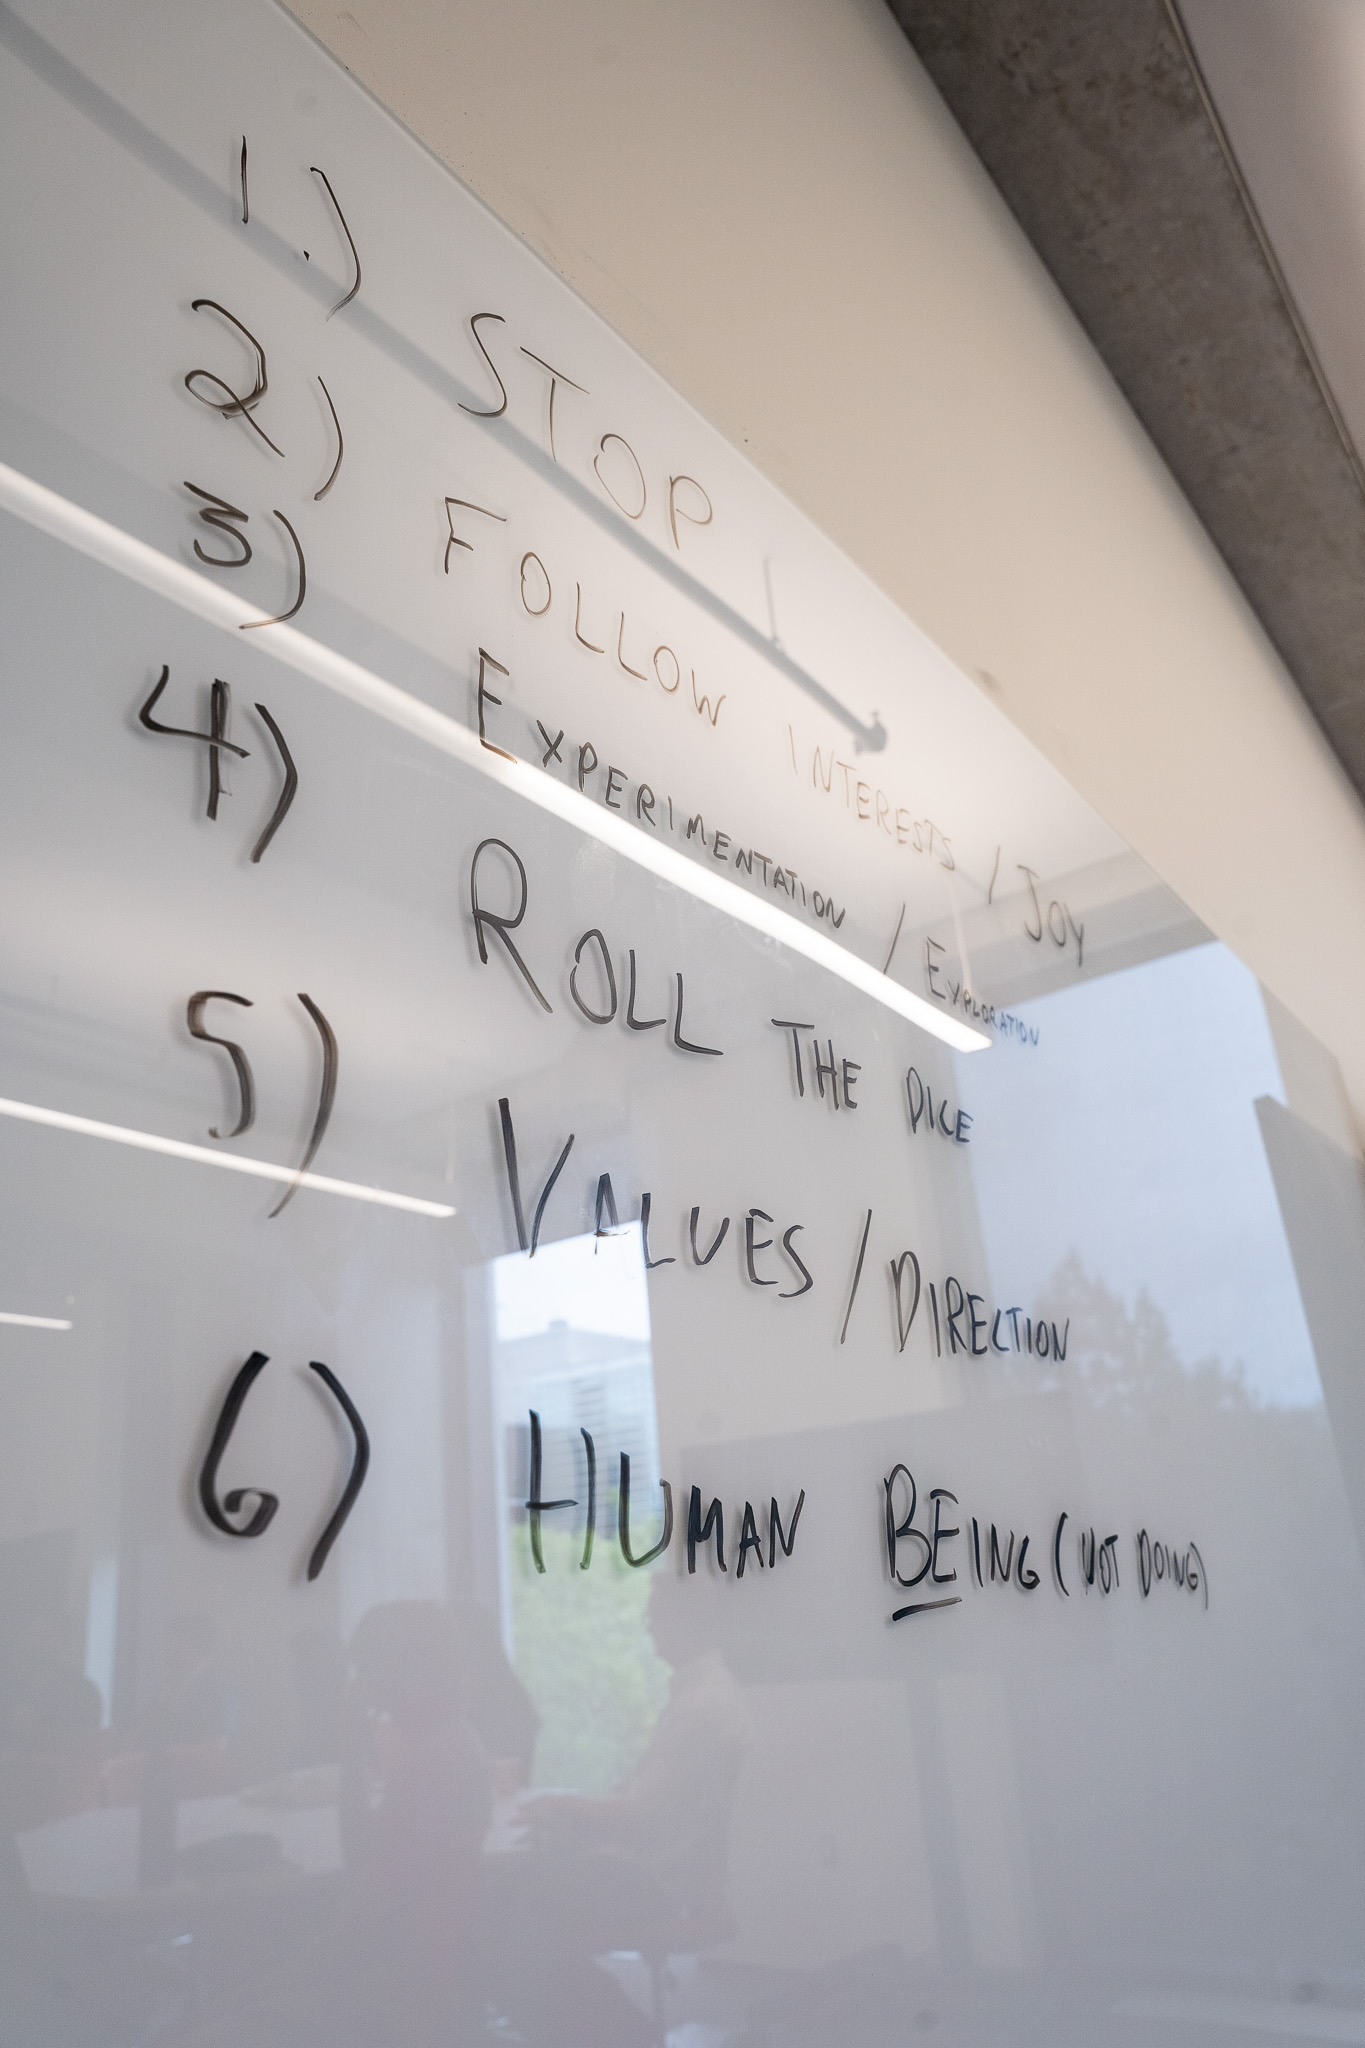 1.) STOP
2) FOLLOW INTERESTS / JOY
3) EXPERIMENTATION / EXPLORATION
4) ROLL THE DICE
5) VALUES / DIRECTION
6) HUMAN BEING (NOT DOING)